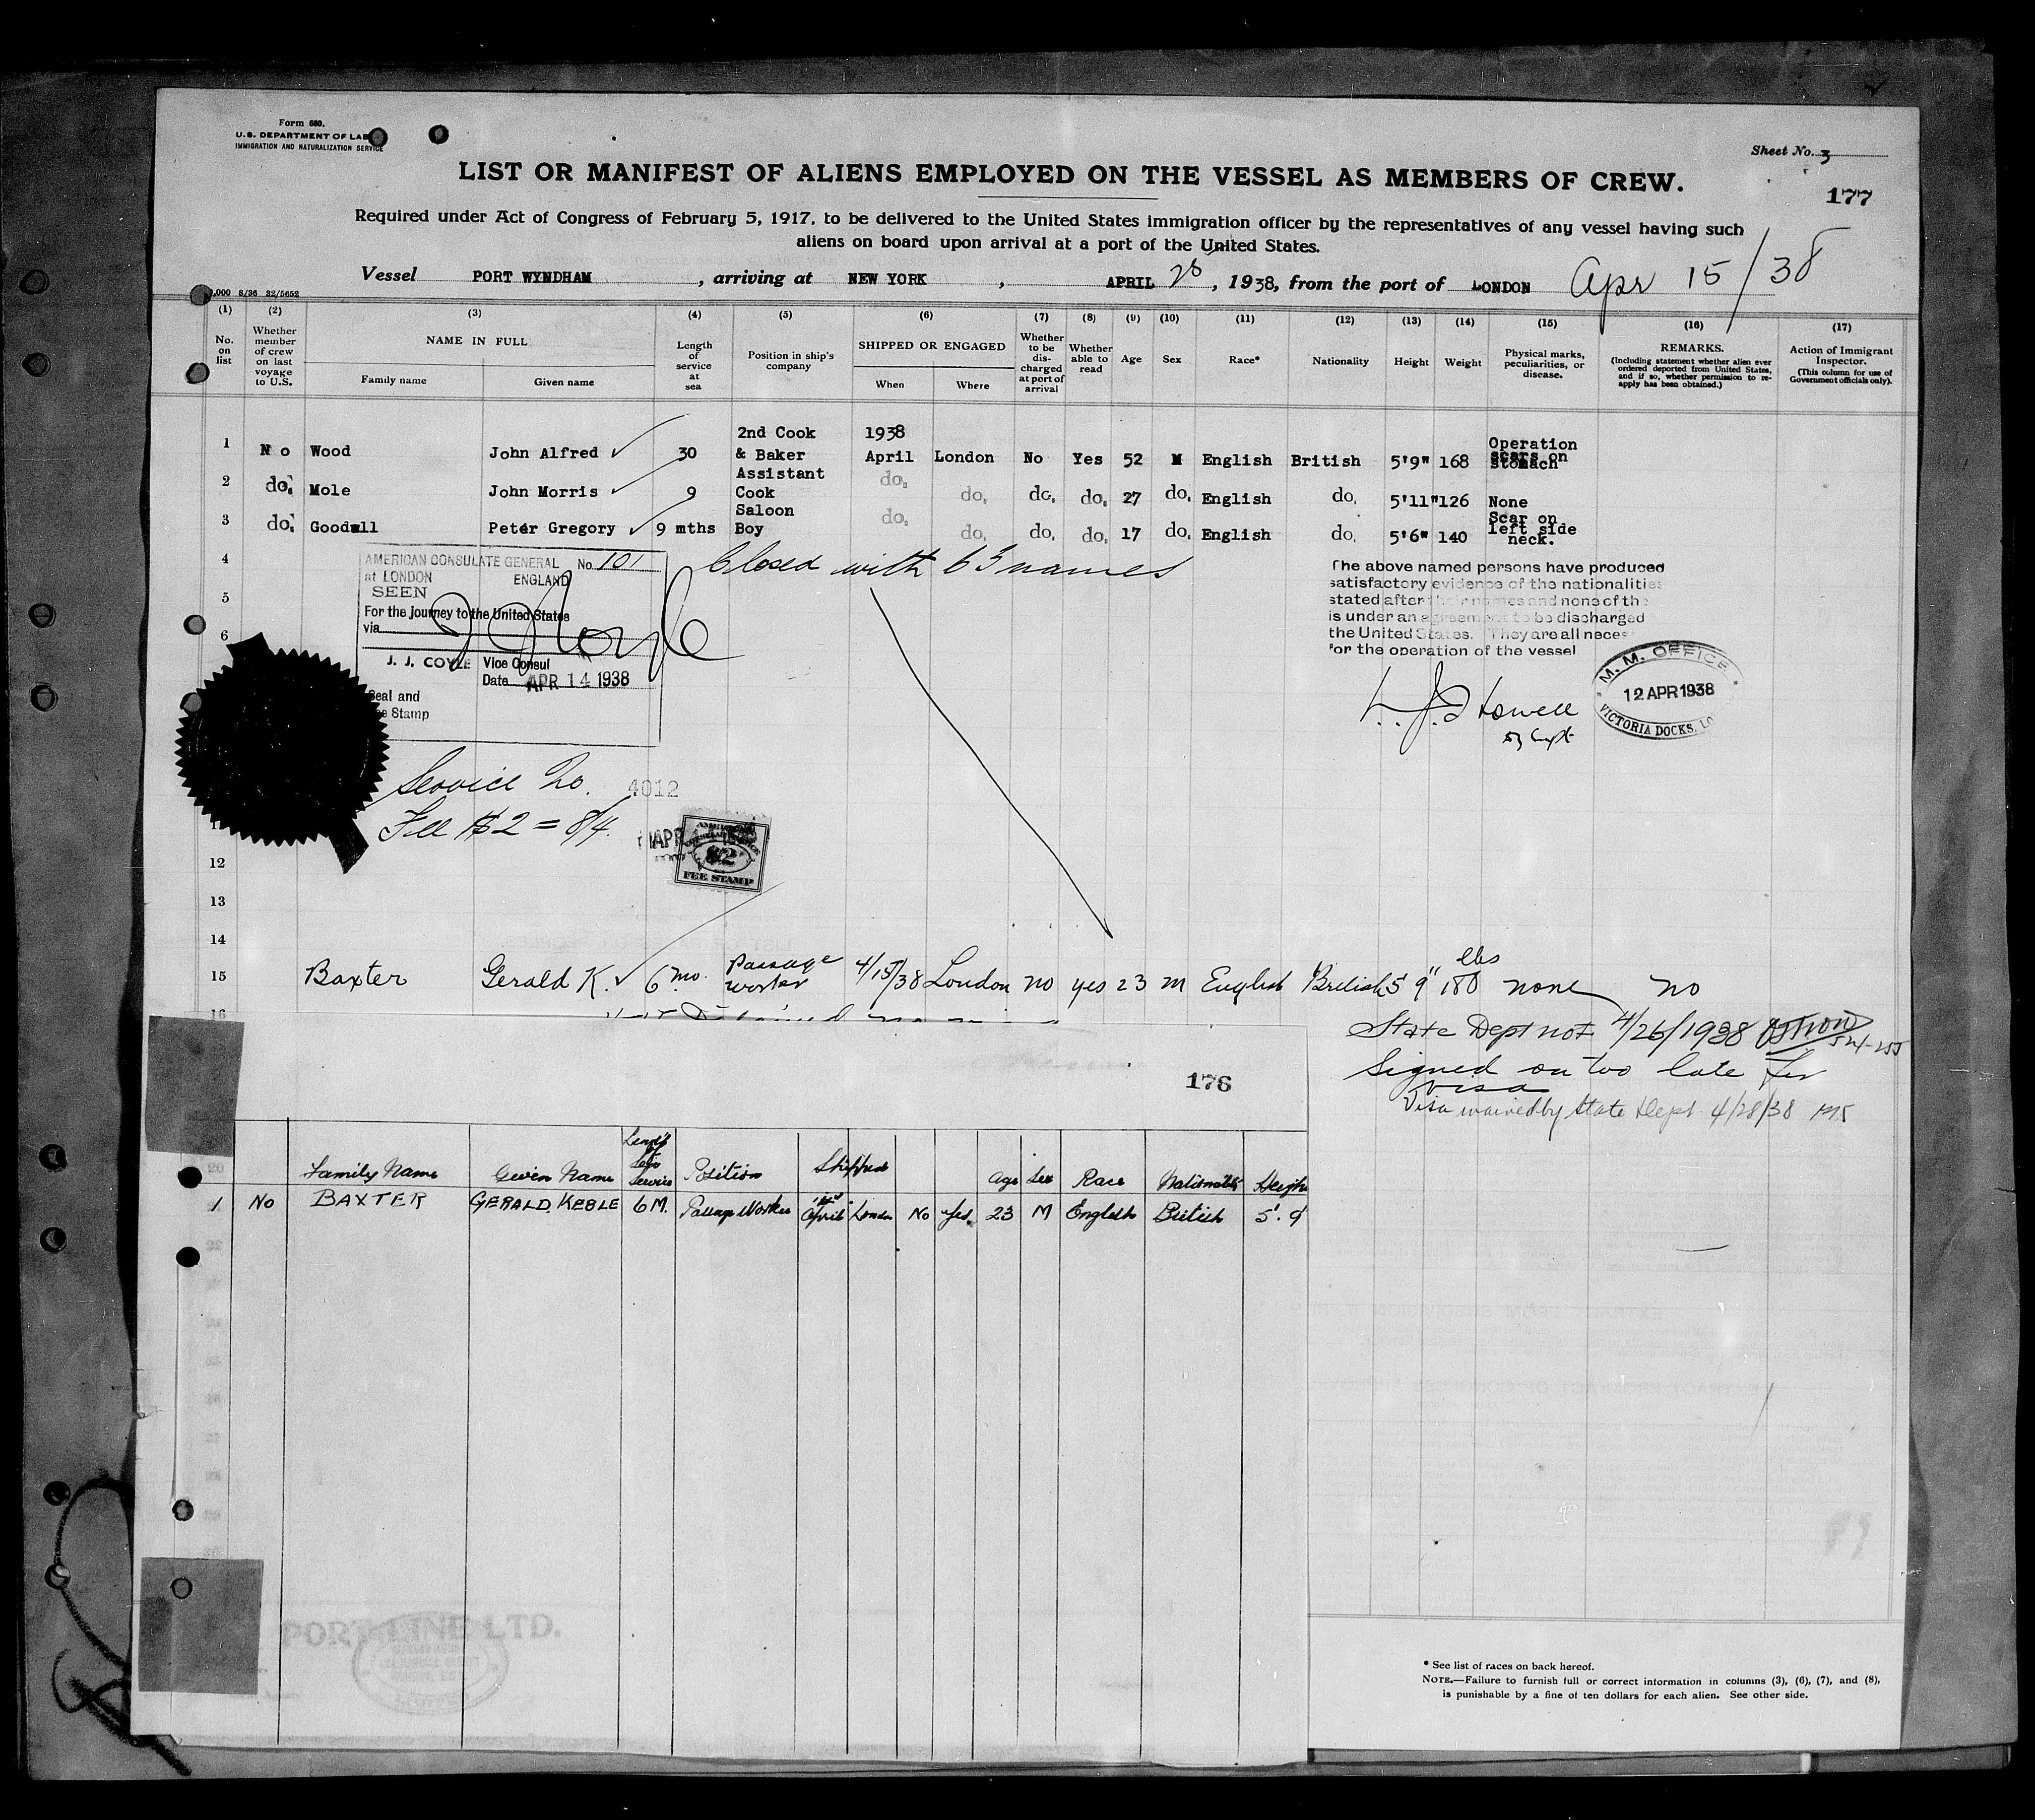 Form 680.
U.S. DEPARTMENT OF LAB
IMMIGRATION AND NATURALIZATION SERVICE
Sheet No. 3
LIST OR MANIFEST OF ALIENS EMPLOYED ON THE VESSEL AS MEMBERS OF CREW.
177
Required under Act of Congress of February 5, 1917, to be delivered to the United States immigration officer by the representatives of any vessel having such
aliens on board upon arrival at a port of the United States.
Vessel PORT WYNDHAM, arriving at NEW YORK, APRIL 26, 1938, from the port of LONDON Apr 15/38
,000 8/36 32/5652
(1) (2) (3) (4) (5) (6) (7) (8) (9) (10) (11) (12) (13) (14) (15) (16) (17)
No. on list
Whether member of crew on last voyage to U.S.
NAME IN FULL
Family name
Given name
Length of service at sea
Position in ship's company
SHIPPED OR ENGAGED
When
Where
Whether to be discharged at port of arrival
Whether able to read
Age
Sex
Race*
Nationality
Height
Weight
Physical marks, peculiarities, or disease.
REMARKS.
(Including statement whether alien ever ordered deported from United States, and if so, whether permission to reapply has been obtained.)
Action of Immigrant Inspector.
(This column for use of Government officials only).
1 No Wood John Alfred 30 2nd Cook & Baker 1938 April London No Yes 52 M English British 5'9" 168 Operation scars on stomach
2 do. Mole John Morris 9 Assistant Cook do. do. do. do. 27 do. English do. 5'11" 126 None
3 do. Goodall Peter Gregory 9 mths Saloon Boy do. do. do. do. 17 do. English do. 5'6" 140 Scar on left side neck.
4
Closed with 63 names
AMERICAN CONSULATE GENERAL No. 101
at LONDON ENGLAND
SEEN
For the Journey to the United States
via
J. J. COYLE Vice Consul
Date APR 14 1938
Seal and
Stamp
5
6
The above named persons have produced
satisfactory evidence of the nationalities
stated after their names and none of the
is under an agreement to be discharged
the United States. They are all neces
for the operation of the vessel
M. M. OFFICE
12 APR 1938
VICTORIA DOCKS, LO
Service No. 4012
Fee $2 = 8/4.
APR
$2
FEE STAMP
12
13
14
15 Baxter Gerald K. 6 mo. Passage worker 4/15/38 London no yes 23 m English British 5' 9" 180 lbs none no
16
State Dept not 4/26/1938
Signed on too late for
visa
Visa waived by State Dept 4/28/38
176
Family Name Given Name Length of Service Position Shipped Age Sex Race Nationality Height
1 No BAXTER GERALD KEBLE 6 M. Passage Worker April London No Yes. 23 M English British 5'. 9
PORT LINE LTD.
* See list of races on back hereof.
NOTE.—Failure to furnish full or correct information in columns (3), (6), (7), and (8),
is punishable by a fine of ten dollars for each alien. See other side.